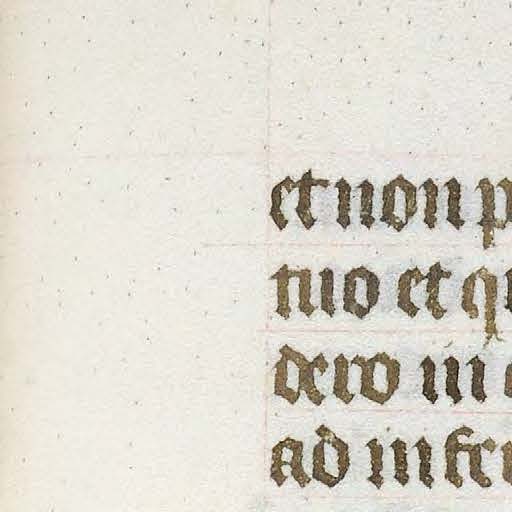 et non p
tuo et qu
dero in
ad infer